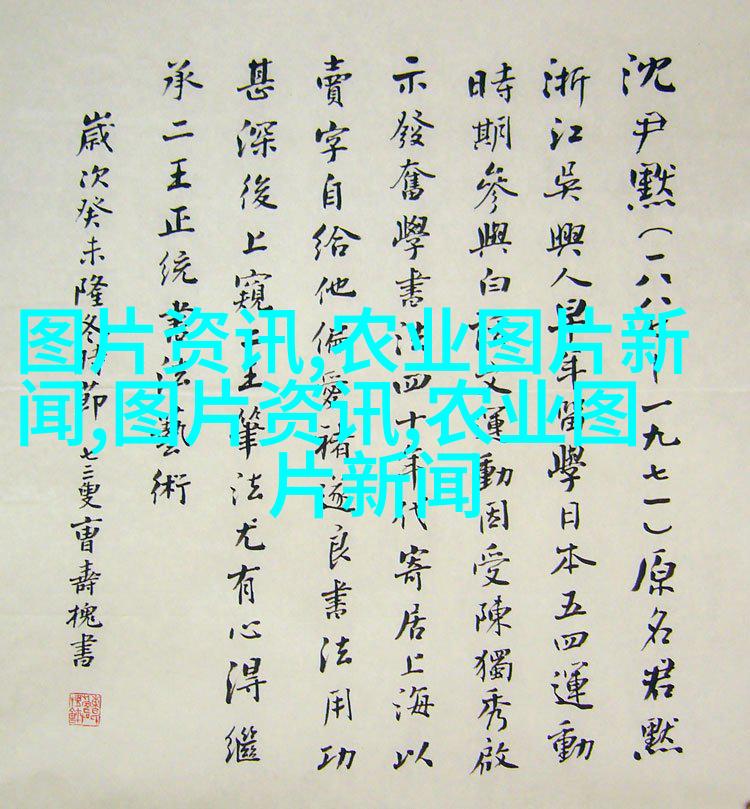 沈尹默(一八八 一九七一)原名君默
浙江吳興人早年留學日本五四運動
時期參與白話文運動因受陳獨秀啟
示發奮學書 四十年代寄居上海以
賣字自給他偏愛褚遂良書法用功
甚深後上窺二王筆法尤有心得繼
承二王正統書法藝術
歲次癸未隆冬時節七三叟曹壽槐書
图片资讯,农业图片新
闻,图片资讯,农业图
片新闻